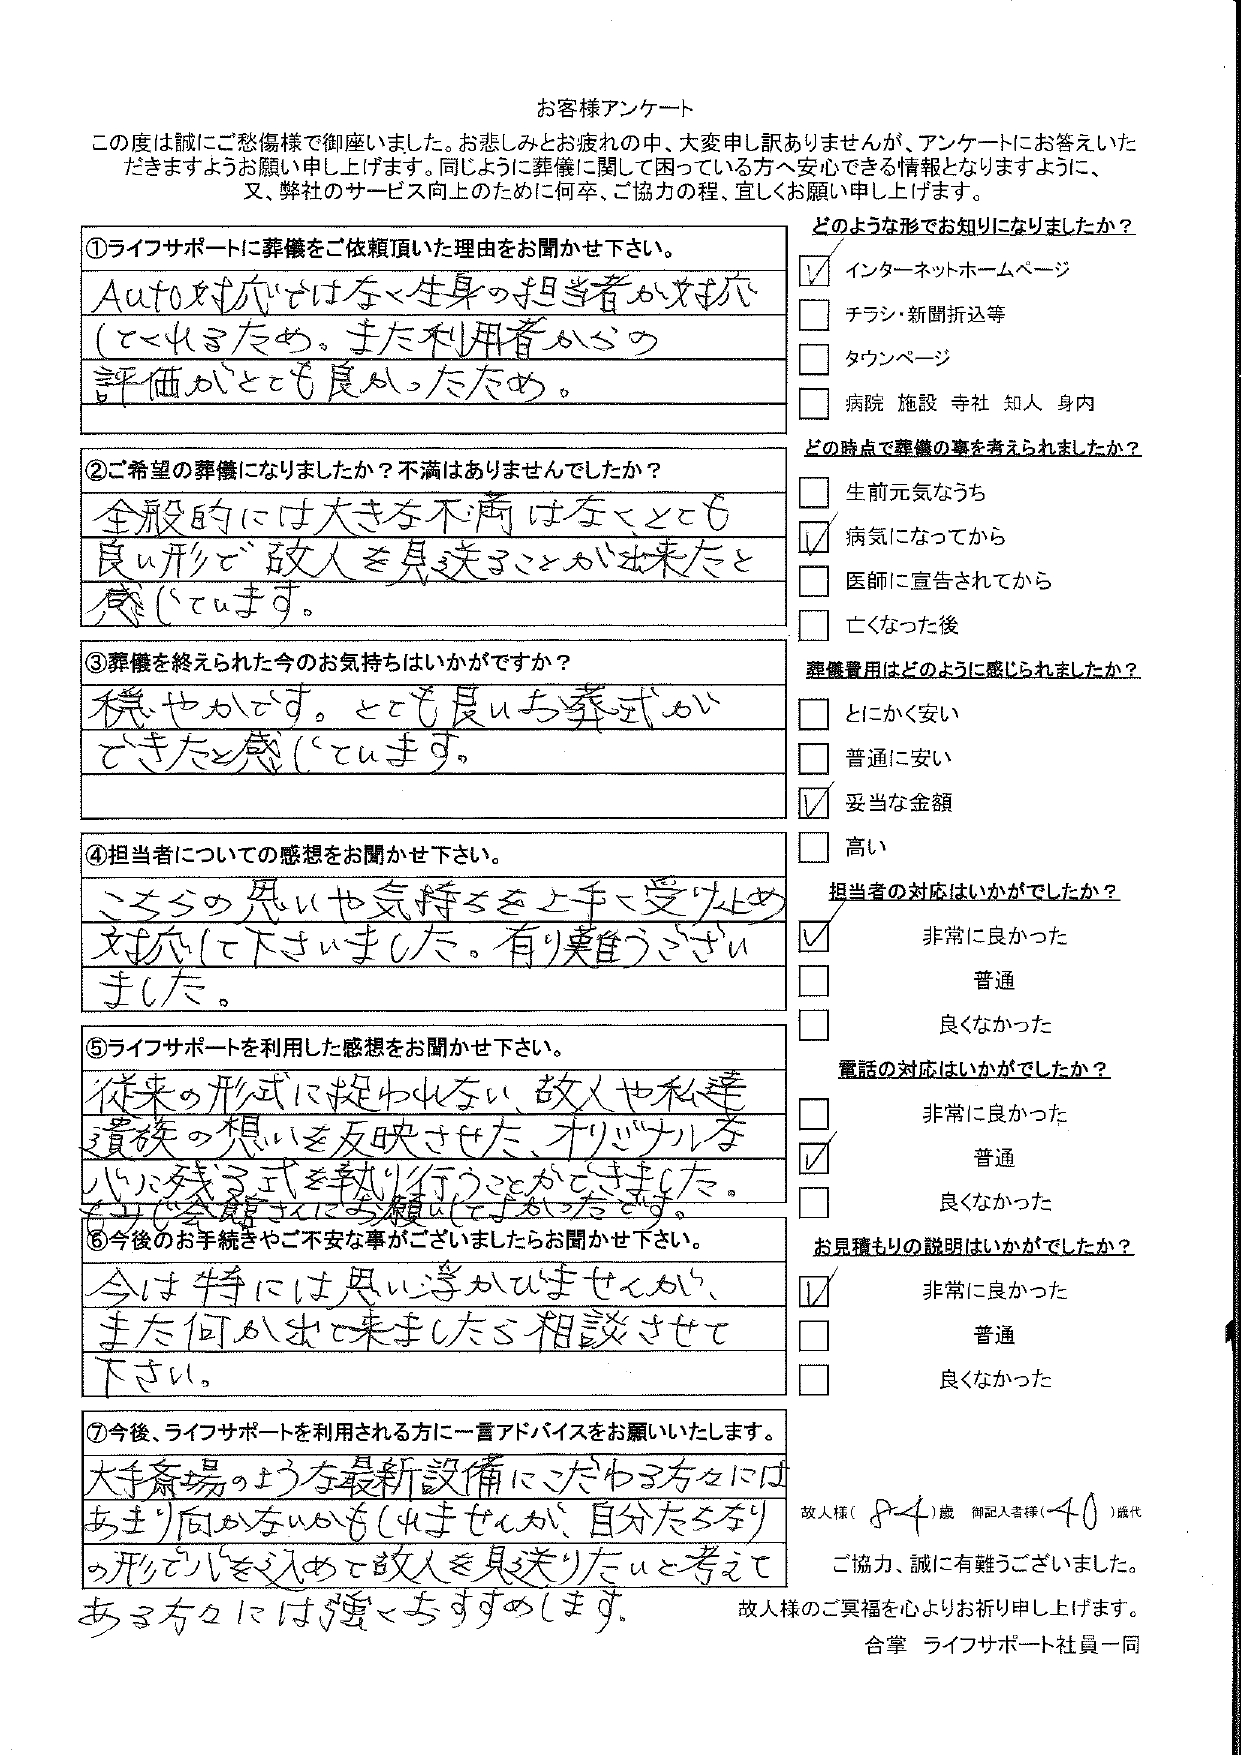 お客様アンケート
この度は誠にご愁傷様で御座いました。お悲しみとお疲れの中、大変申し訳ありませんが、アンケートにお答えいた
だきますようお願い申し上げます。同じように葬儀に関して困っている方へ安心できる情報となりますように、
又、弊社のサービス向上のために何卒、ご協力の程、宜しくお願い申し上げます。
①ライフサポートに葬儀をご依頼頂いた理由をお聞かせ下さい。
Auto対応ではなく生身の担当者が対応
してくれるため。また利用者からの
評価がとても良かったため。
②ご希望の葬儀になりましたか？不満はありませんでしたか？
全般的には大きな不満はなくとても
良い形で故人を見送ることが出来たと
感じています。
③葬儀を終えられた今のお気持ちはいかがですか？
穏やかです。とても良いお葬式が
できたと感じています。
④担当者についての感想をお聞かせ下さい。
こちらの思いや気持ちを上手く受け止め
対応して下さいました。有り難うござい
ました。
⑤ライフサポートを利用した感想をお聞かせ下さい。
従来の形式に捉われない、故人や私達
遺族の想いを反映させた、オリジナルな
心に残る式を執り行うことができました。
もみじ会館さんにお願いしてよかったです。
⑥今後のお手続きやご不安な事がございましたらお聞かせ下さい。
今は特には思い浮かびませんが、
また何か出て来ましたら相談させて
下さい。
⑦今後、ライフサポートを利用される方に一言アドバイスをお願いいたします。
大手斎場のような最新設備にこだわる方々には
あまり向かないかもしれませんが、自分たちなり
の形で心を込めて故人を見送りたいと考えて
ある方々には強くおすすめします。
どのような形でお知りになりましたか？
インターネットホームページ
チラシ・新聞折込等
タウンページ
病院 施設 寺社 知人 身内
どの時点で葬儀の事を考えられましたか？
生前元気なうち
病気になってから
医師に宣告されてから
亡くなった後
葬儀費用はどのように感じられましたか？
とにかく安い
普通に安い
妥当な金額
高い
担当者の対応はいかがでしたか？
非常に良かった
普通
良くなかった
電話の対応はいかがでしたか？
非常に良かった
普通
良くなかった
お見積もりの説明はいかがでしたか？
非常に良かった
普通
良くなかった
故人様( 84 )歳 御記入者様( 40 )歳代
ご協力、誠に有難うございました。
故人様のご冥福を心よりお祈り申し上げます。
合掌 ライフサポート社員一同